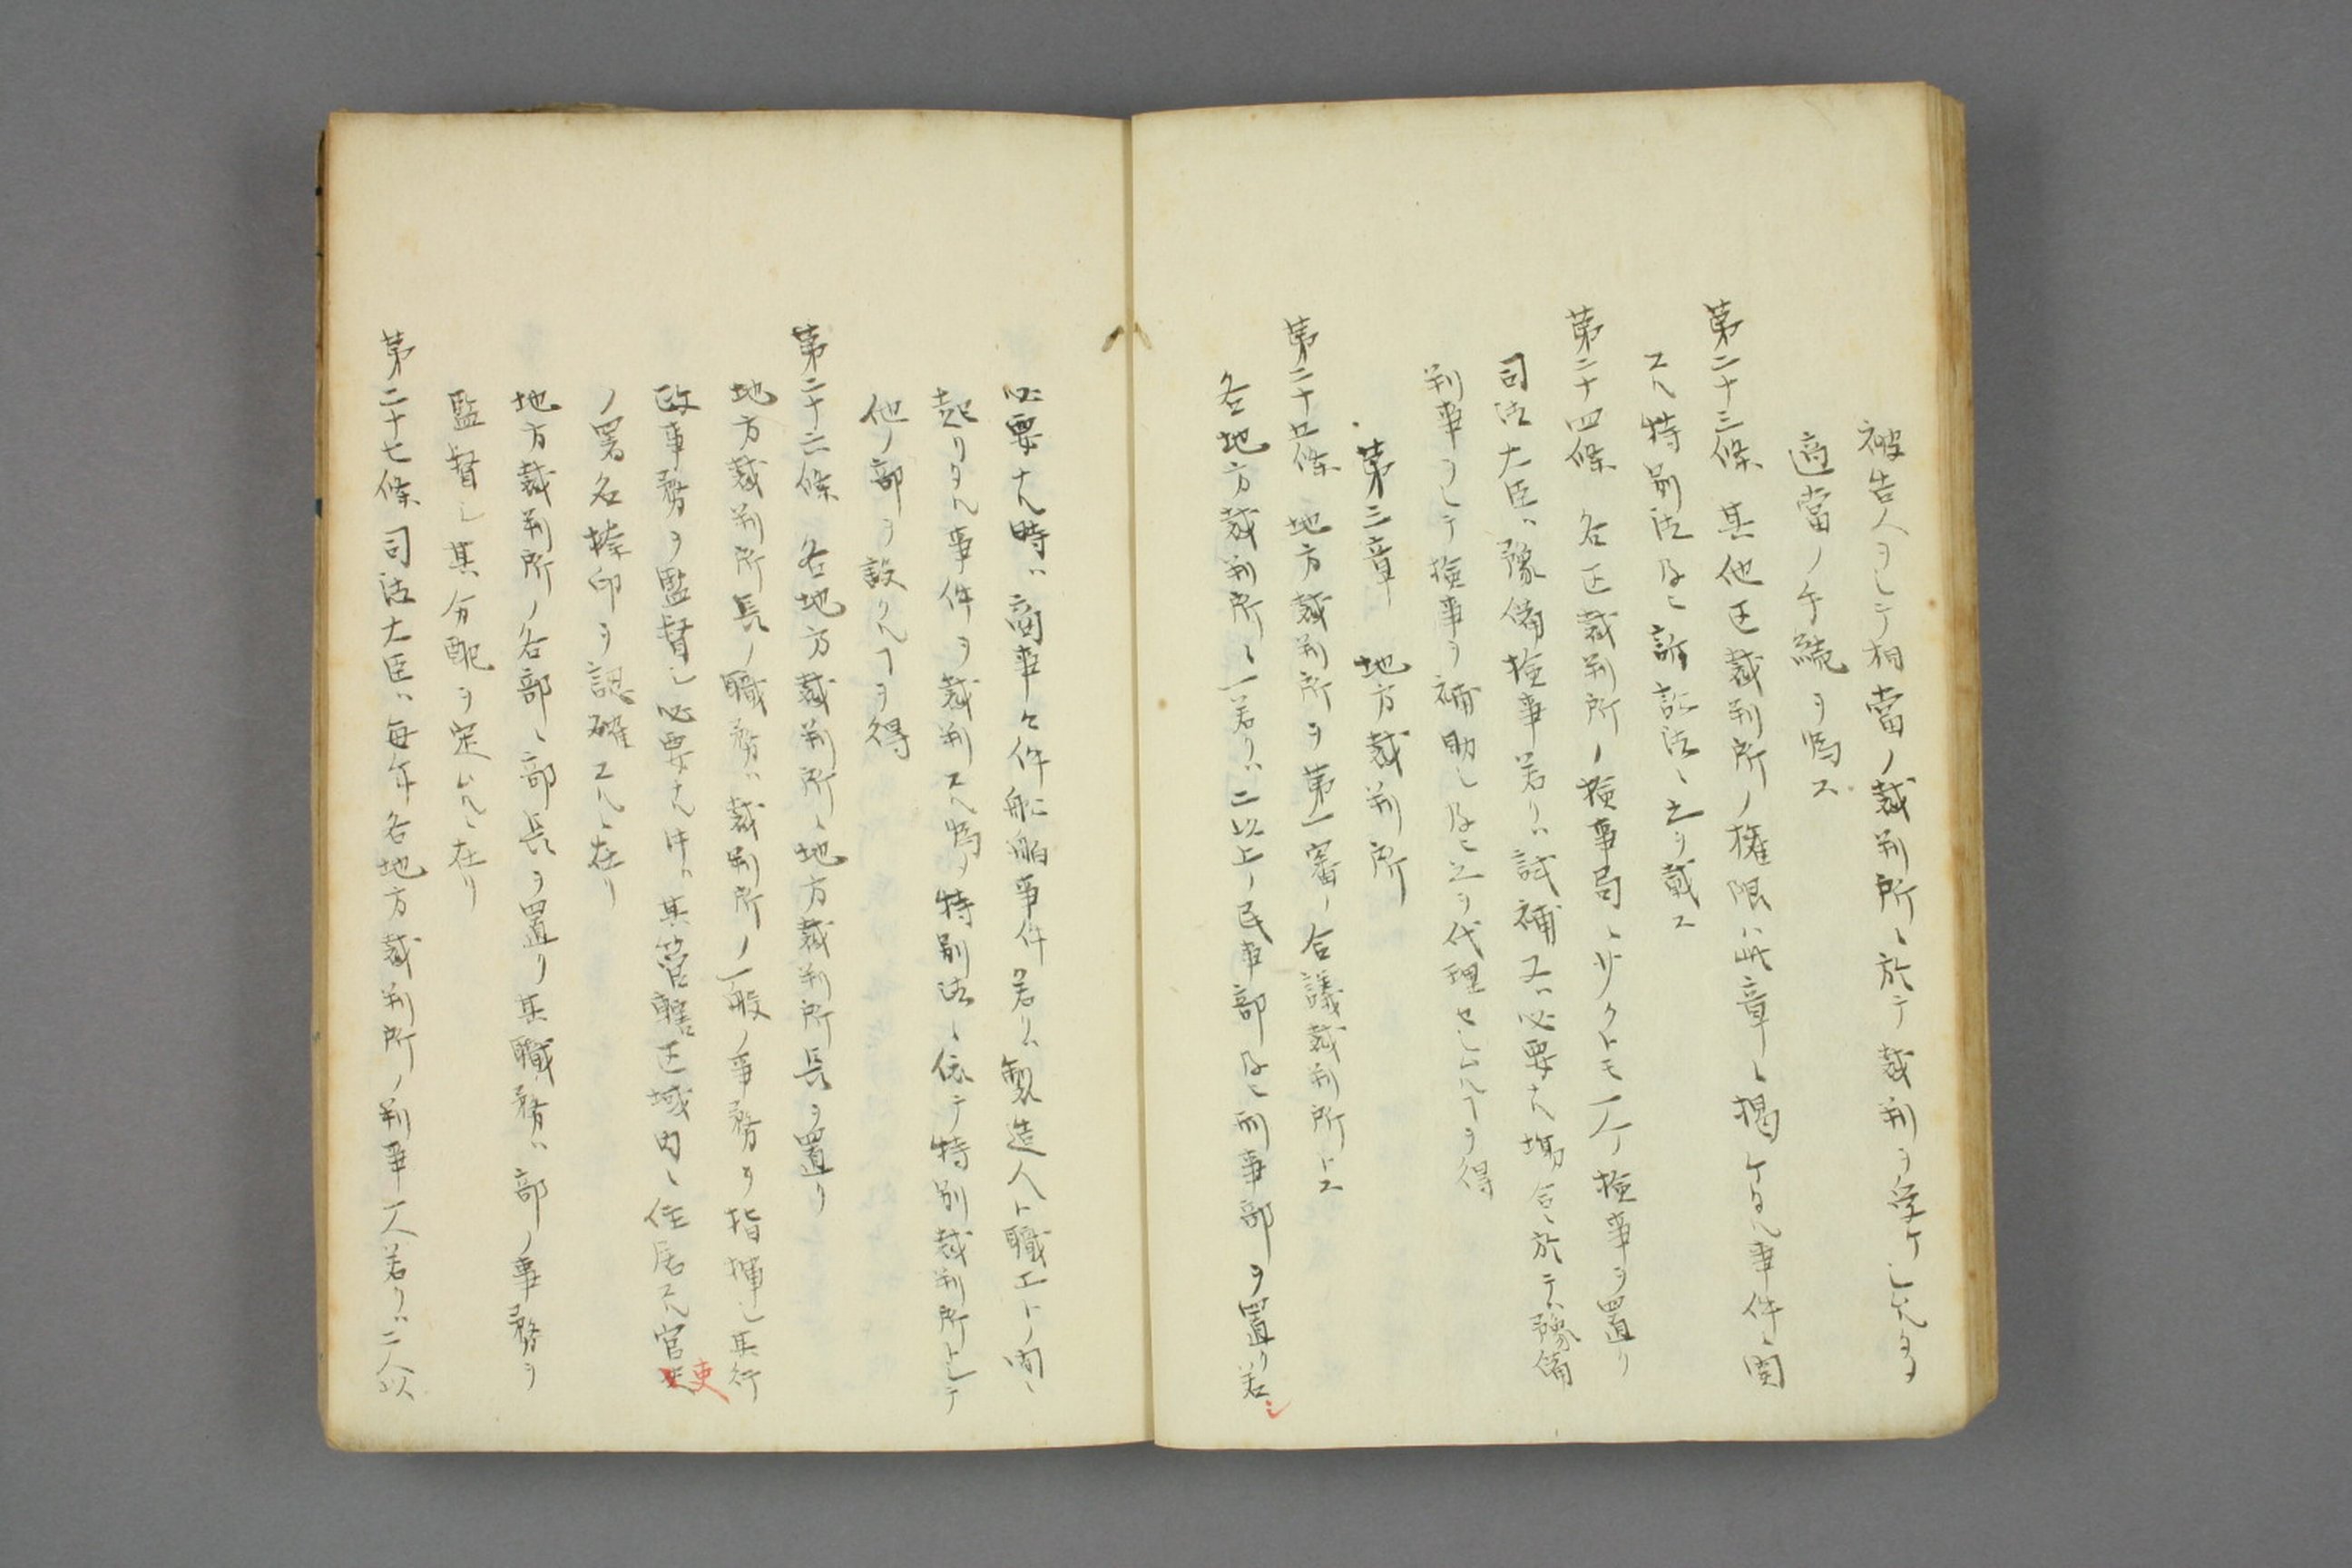 被告人ヲシテ相當ノ裁判所ニ於テ裁判ヲ受ケシムル
適當ノ手續ヲ爲ス
第二十三條 其他区裁判所ノ権限ハ此章ニ揭ケタル事件ニ関
スル特別法及ヒ訴訟法ニ之ヲ載ス
第二十四條 各区裁判所ノ検事局ニ少クトモ一人ノ検事ヲ置ク
司法大臣ハ豫備検事若クハ試補又ハ必要ナル塲合ニ於テハ豫備
判事ヲシテ検事ヲ補助シ及ヒ之ヲ代理セシムルヿヲ得
第三章 地方裁判所
第二十五條 地方裁判所ヲ第一審ノ合議裁判所トス
各地方裁判所ニ一若クハ二以上ノ民事部及ヒ刑事部ヲ置ク若シ
必要ナル時ハ商事々件船舶事件若クハ製造人ト職工トノ間ニ
起リタル事件ヲ裁判スル爲メ特別法ニ依テ特別裁判所トシテ
他ノ部ヲ設クルヿヲ得
第二十六條 各地方裁判所ニ地方裁判所長ヲ置ク
地方裁判所長ノ職務ハ裁判所ノ一般ノ事務ヲ指揮シ其行
政事務ヲ監督シ必要ナル時ハ其管轄区域内ニ住居スル官吏
ノ署名捺印ヲ認確スルニ在リ
地方裁判所ノ各部ニ部長ヲ置ク其職務ハ部ノ事務ヲ
監督シ其分配ヲ定ムルニ在リ
第二十七條 司法大臣ハ毎年各地方裁判所ノ判事一人若クハ二人以